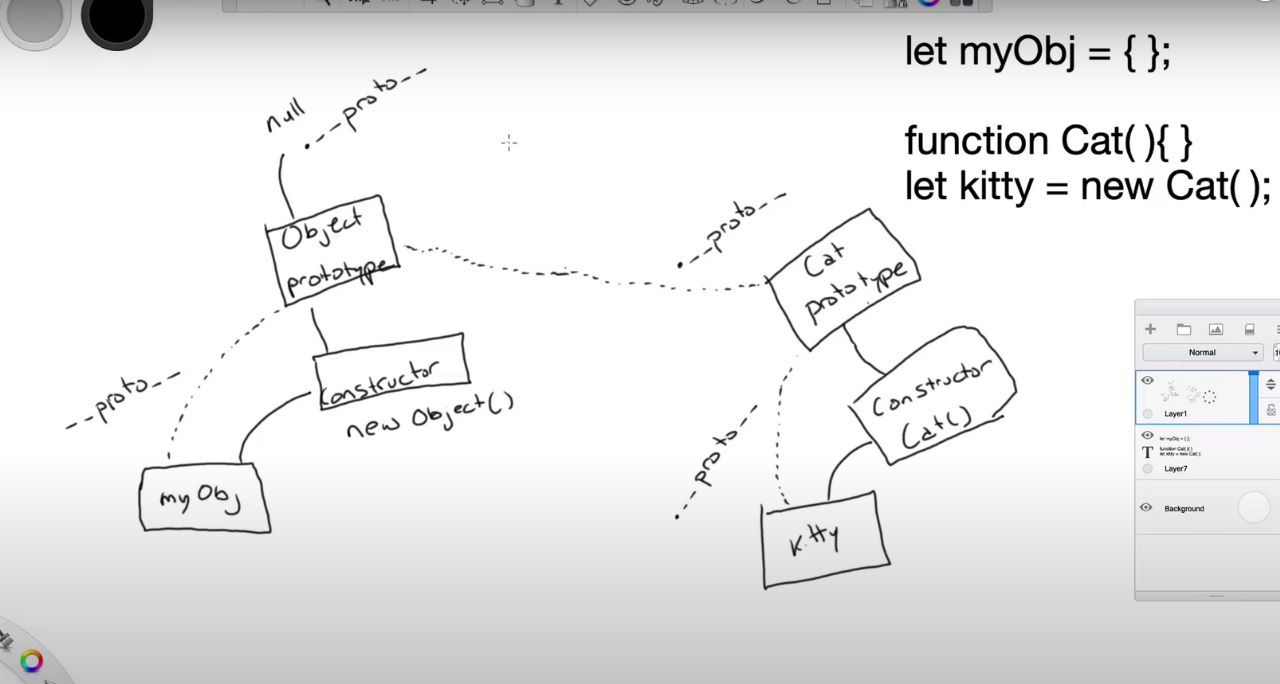 let myObj = { };
function Cat( ){ }
let kitty = new Cat( );
null
.--proto--
Object
prototype
constructor
new Object()
--proto--
my Obj
.--proto--
Cat
prototype
Constructor
Cat()
.--proto--
Kitty
Normal
Layer1
let myObj = { };
function Cat( ){ }
let kitty = new Cat( );
T
Layer7
Background